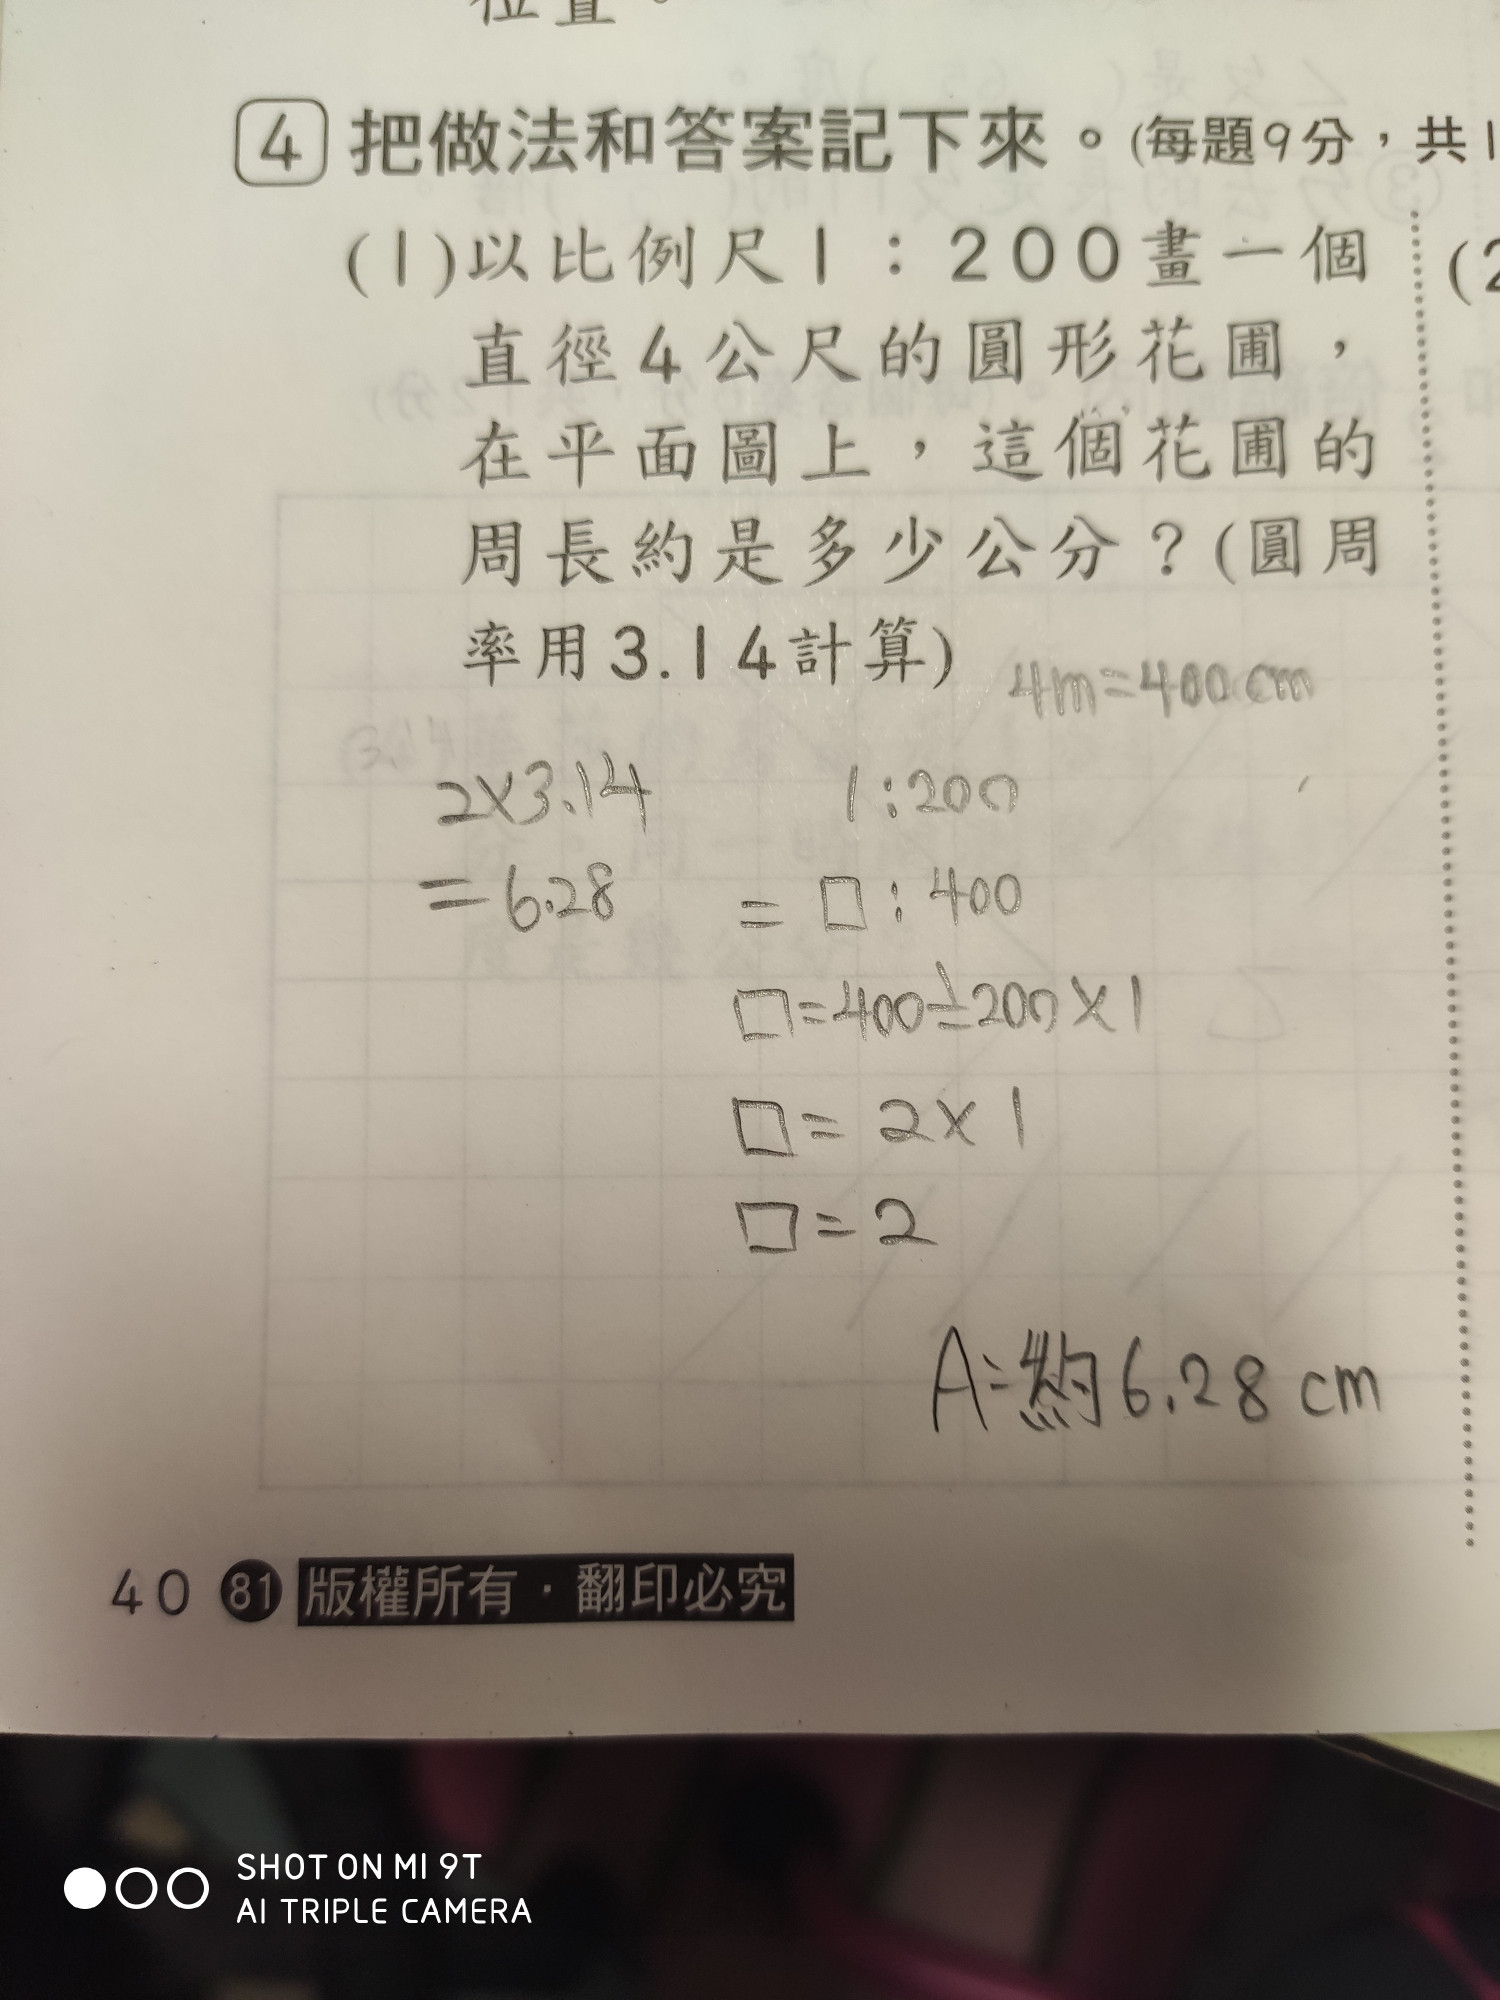 位置。
4 把做法和答案記下來。(每題9分，共1
(1)以比例尺1：200畫一個
直徑4公尺的圓形花圃，
在平面圖上，這個花圃的
周長約是多少公分？(圓周
率用3.14計算)
4m=400cm
2×3.14
=6.28
1:200
=□:400
□=400÷200×1
□=2×1
□=2
A:約6.28cm
(2
40 81 版權所有·翻印必究
SHOT ON MI 9T
AI TRIPLE CAMERA